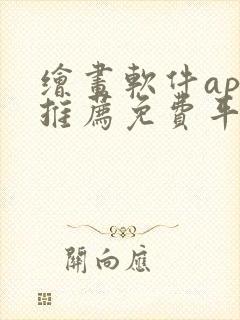 繪畫軟件ap
推薦免費平
開向應